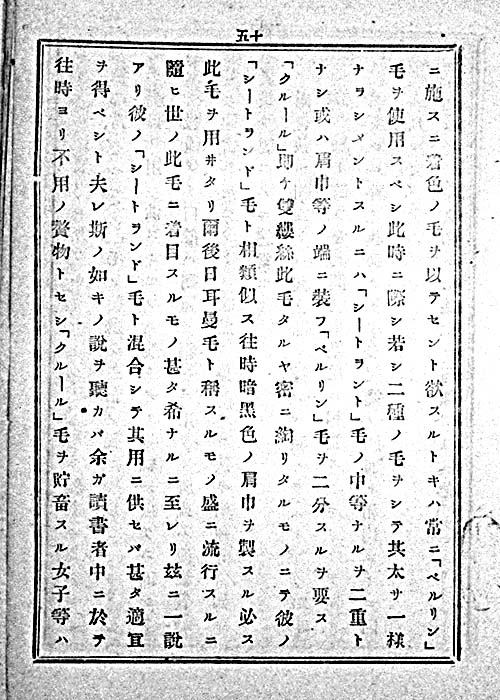 十五
ニ施スニ着色ノ毛ヲ以テセント欲スルトキハ常ニ「ベルリン」
毛ヲ使用スベシ此時ニ際シ若シ二種ノ毛ヲシテ其太サ一樣
ナヲシメントスルニハ「シートヲント」毛ノ中等ナルヲ二重ト
ナシ或ハ肩巾等ノ端ニ裝フ「ベルリン」毛ヲ二分スルヲ要ス
「クルール」即チ雙縷絲此毛タルヤ密ニ綯リタルモノニテ彼ノ
「シートヲンド」毛ト相類似ス往時暗黑色ノ肩巾ヲ製スル必ス
此毛ヲ用サタリ爾後日耳曼毛ト稱スルモノ盛ニ流行スルニ
隨ヒ世ノ此毛ニ着目スルモノ甚タ希ナルニ至レリ玆ニ一說
アリ彼ノ「シートヲンド」毛ト混合シテ其用ニ供セバ甚タ適宜
ヲ得ベシト夫レ斯ノ如キノ說ヲ聽カバ余ガ讀書者中ニ於テ
往時ヨリ不用ノ贅物トセシ「クルール」毛ヲ貯畜スル女子等ハ